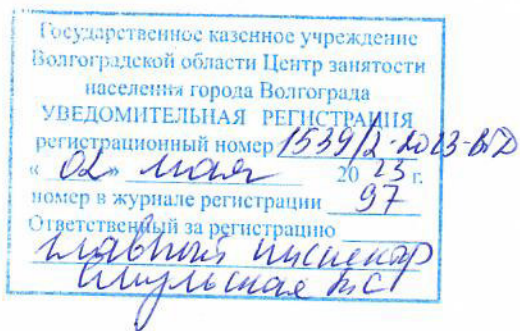 Государственное казенное учреждение
Волгоградской области Центр занятости
населения города Волгограда
УВЕДОМИТЕЛЬНАЯ РЕГИСТРАЦИЯ
регистрационный номер 1539/2-2023-ВД
« 02 » мая 20 23 г.
номер в журнале регистрации 97
Ответственный за регистрацию
главный инспектор